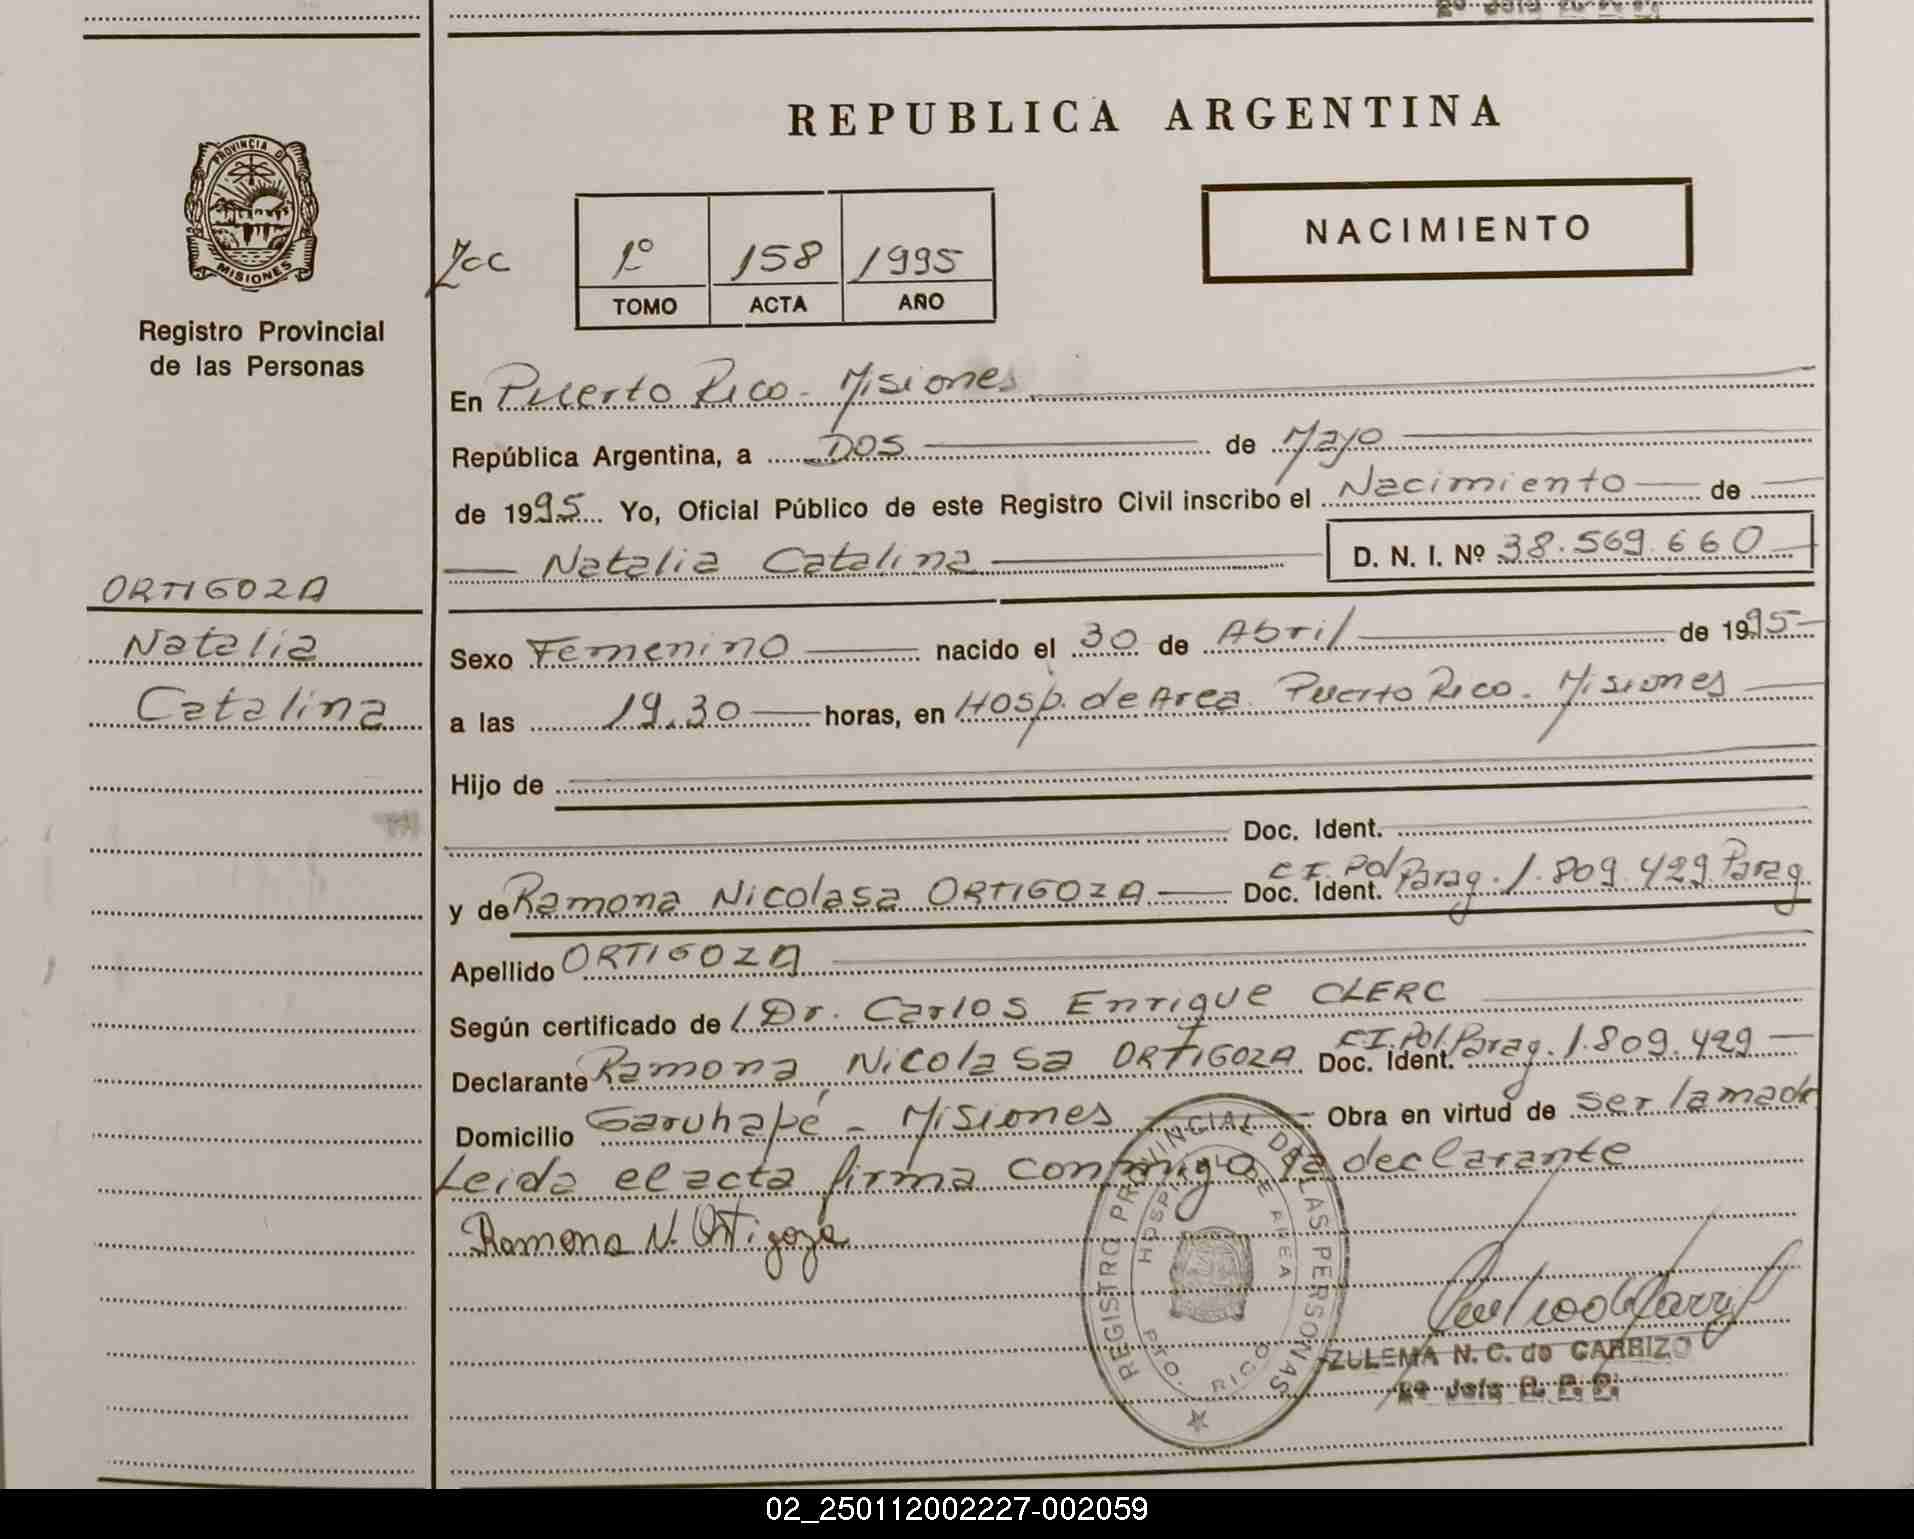 REPUBLICA ARGENTINA
PROVINCIA D
MISIONES
Registro Provincial
de las Personas
ORTIGOZA
Natalia
Catalina
Zcc
1º 158 1995
TOMO ACTA AÑO
NACIMIENTO
En Puerto Rico - Misiones
República Argentina, a DOS de Mayo
de 1995 Yo, Oficial Público de este Registro Civil inscribo el Nacimiento de
Natalia Catalina D. N. I. Nº 38.569.660
Sexo Femenino nacido el 30 de Abril de 1995
a las 19.30 horas, en Hosp. de Area. Puerto Rico. Misiones
Hijo de
Doc. Ident.
y de Ramona Nicolasa ORTIGOZA Doc. Ident. C.I. Pol Parag. 1.809.429 Parag
Apellido ORTIGOZA
Según certificado de Dr. Carlos Enrique CLERC
Declarante Ramona Nicolasa ORTIGOZA Doc. Ident. C.I. Pol. Parag. 1.809.429
Domicilio Garuhapé - Misiones Obra en virtud de ser lamadr
Leida el acta firma conmigo la declarante
Ramona N. Ortigoza
REGISTRO PROVINCIAL DE LAS PERSONAS
HOSPITAL DE AREA
PTO. RICO
ZULEMA N. C. de CARRIZO
2º Jefe R. P. P.
02_250112002227-002059